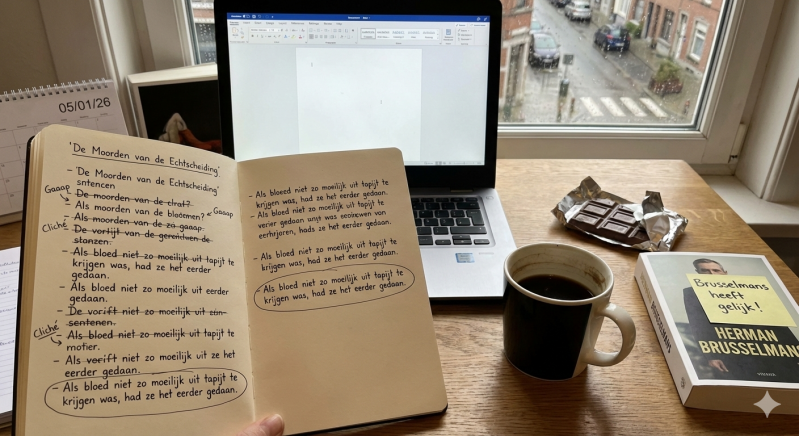 05/01/26
'De Moorden van de Echtscheiding'
- De Moorden van de Echtscheiding'
sntencen
Gaaap
- De moorden van de clraf?
- Als moorden van de bloemen? Gaaap
- Als moorden van de zo gaaap.
Cliché
- De vorlijt van de gerenlven de
stanzen.
- Als bloed niet zo moeilijk uit tapijt te
krijgen was, had ze het eerder
gedaan.
- Als bloed niet zo moeilijk uit eerder
gedaan.
- De vorift niet zo moeilijk uit zón
sentenen.
Cliché
- Als bloed niet zo moeilijk uit tapijt te
motier.
- Als verift niet zo moeilijk uit ze het
eerder gedaan.
- Als bloed niet zo moeilijk uit tapijt te
krijgen was, had ze het eerder gedaan.
- Als bloeed niet zo moeilijk uit tapijt te
krijgen was, had ze het eerder gedaan.
- Als bloed niet zo moeilijk uit tapijt te
verier gedaan van
- Als bloed niet zo moeilijk uit tapijt te
krijgen was, had ze het eerder gedaan.
- Als bloed niet zo moeilijk uit tapijt te
krijgen was, had ze het eerder gedaan.
Brusselmans
heeft
gelijk!
HERMAN
BRUSSELMANS